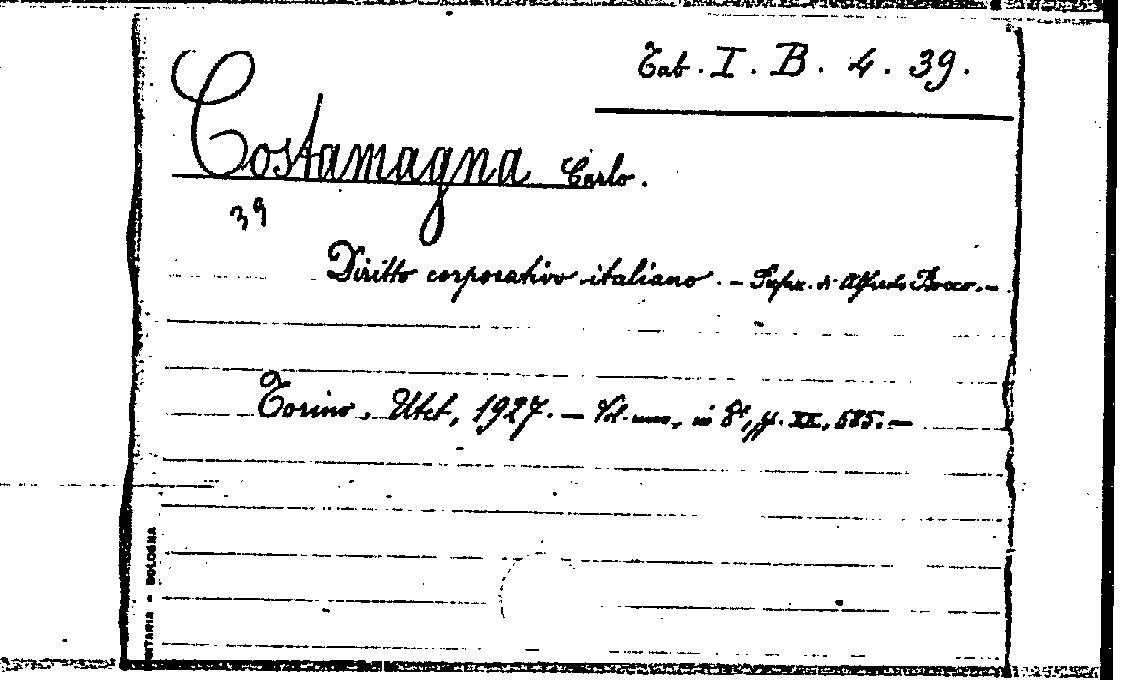 Tab. I. B. 4. 39.
Costamagna Carlo.
39
Diritto corporativo italiano. - Prefaz. di Alfredo Rocco. -
Torino, Utet, 1927. - Vol. uno, in 8°, p. XX, 585. -
NITARIA - BOLOGNA